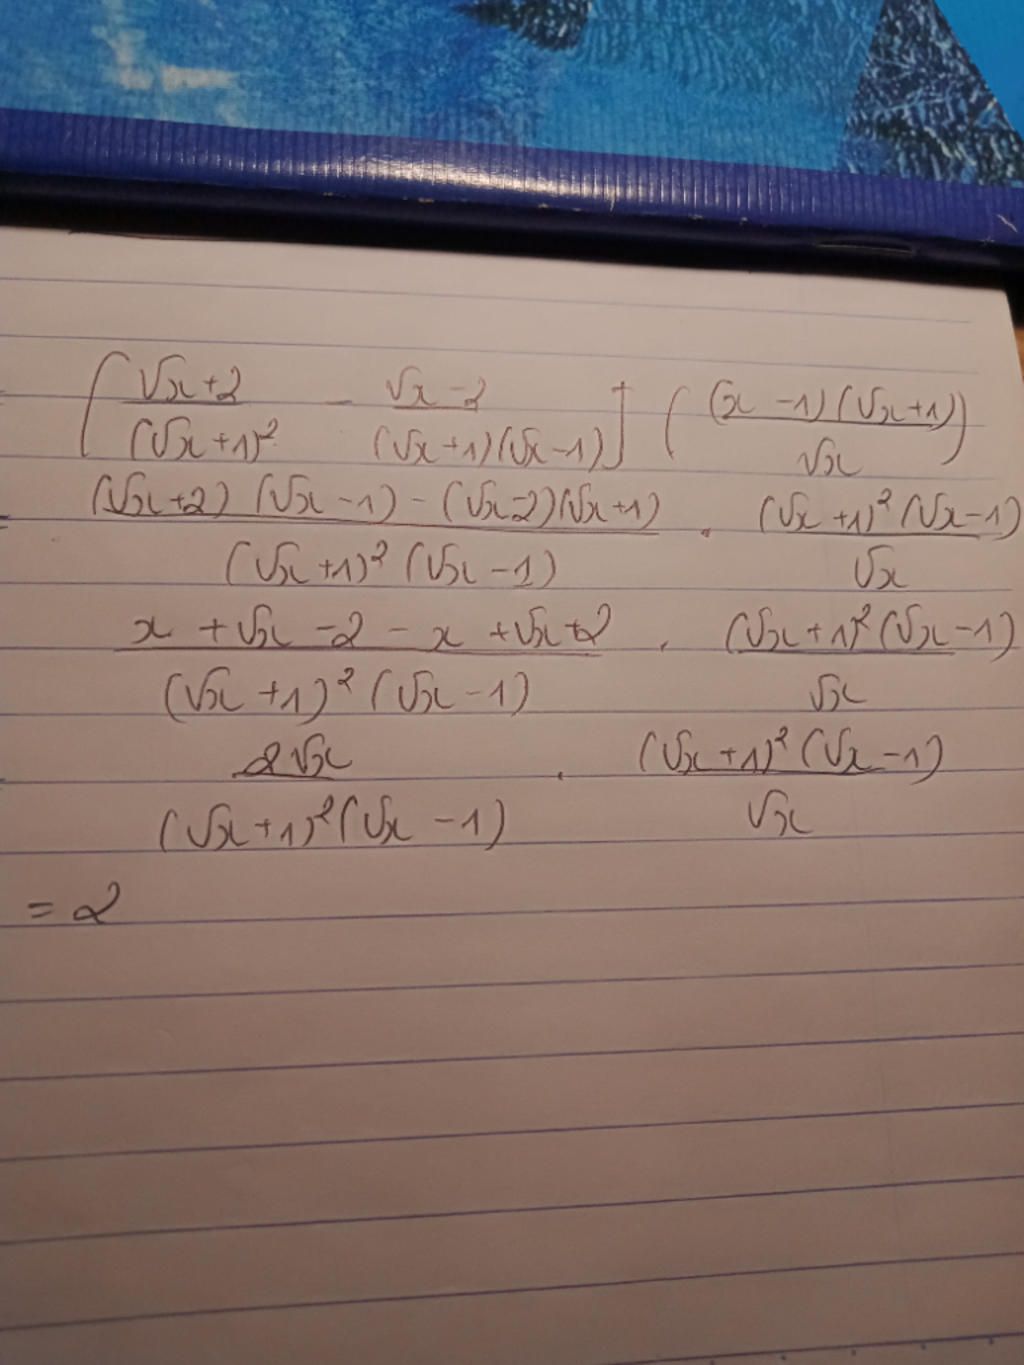 [ (√x+2)/(√x+1)² − (√x−2)/((√x+1)(√x−1)) ] ( (x−1)(√x+1)/√x )
((√x+2)(√x−1)−(√x−2)(√x+1))/((√x+1)²(√x−1)) . (√x+1)²(√x−1)/√x
(x+√x−2−x+√x+2)/((√x+1)²(√x−1)) . (√x+1)²(√x−1)/√x
2√x/((√x+1)²(√x−1)) . (√x+1)²(√x−1)/√x
= 2